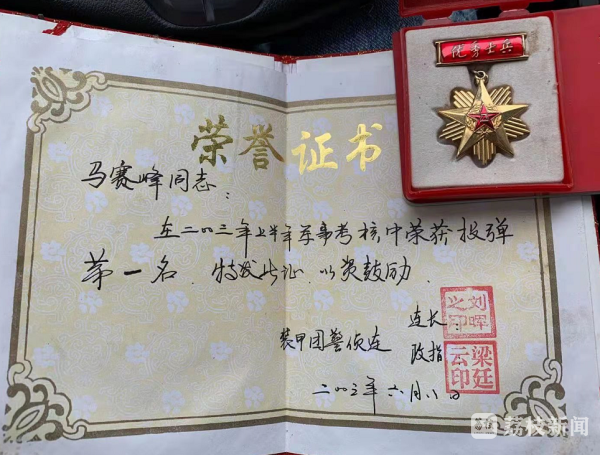 优秀士兵
荣誉证书
马赛峰同志：
在二〇〇三年上半年军事考核中荣获投弹
第一名．特发此证．以资鼓励．
连长：
刘晖之印
装甲团警侦连 政指
梁廷云印
二〇〇三年六月八日
荔枝新闻